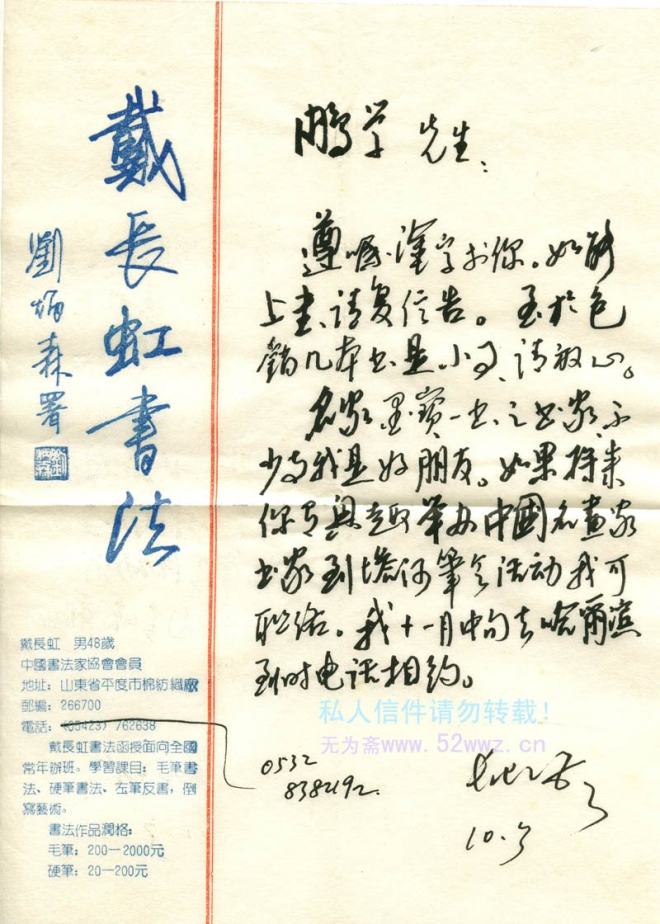 戴長虹書法
劉炳森署
鵬学先生：
遵嘱，漢字于你。如能
上走，请复信告。至於包
銷几本书是小了，请放心。
名家墨宝一书之书家不
少与我是好朋友。如果将来
你有興趣举办中國名畫家
书家到塔河筆会活动我可
联络。我十一月中旬去哈爾濱
到时电话相约。
0532
838492
10.3
戴長虹 男48歲
中國書法家協會會員
地址：山東省平度市棉紡織廠
郵編：266700
電話：(05423) 762638
戴長虹書法函授面向全國
常年辦班。學習課目：毛筆書
法、硬筆書法、左筆反書，倒
寫藝術。
書法作品潤格：
毛筆：200—2000元
硬筆：20—200元
私人信件请勿转载！
无为斋www.52wwz.cn